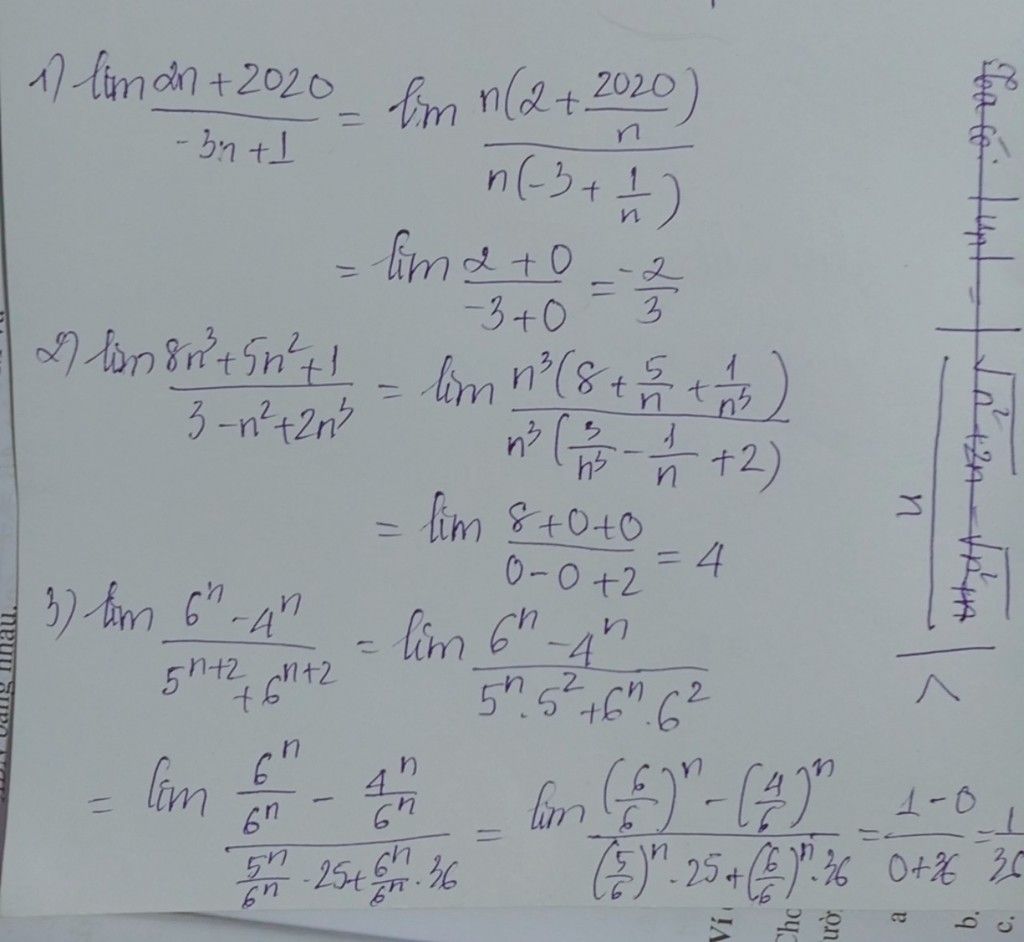 1) lim (2n + 2020)/(-3n + 1) = lim n(2 + 2020/n)/n(-3 + 1/n)
= lim (2 + 0)/(-3 + 0) = -2/3
2) lim (8n³ + 5n² + 1)/(3 - n² + 2n³) = lim n³(8 + 5/n + 1/n³)/n³(3/n³ - 1/n + 2)
= lim (8 + 0 + 0)/(0 - 0 + 2) = 4
3) lim (6ⁿ - 4ⁿ)/(5ⁿ⁺² + 6ⁿ⁺²) = lim (6ⁿ - 4ⁿ)/(5ⁿ . 5² + 6ⁿ . 6²)
= lim (6ⁿ/6ⁿ - 4ⁿ/6ⁿ)/(5ⁿ/6ⁿ . 25 + 6ⁿ/6ⁿ . 36) = lim ((6/6)ⁿ - (4/6)ⁿ)/((5/6)ⁿ . 25 + (6/6)ⁿ . 36) = (1 - 0)/(0 + 36) = 1/36
bằng nhau.
Ví
a
b.
c.